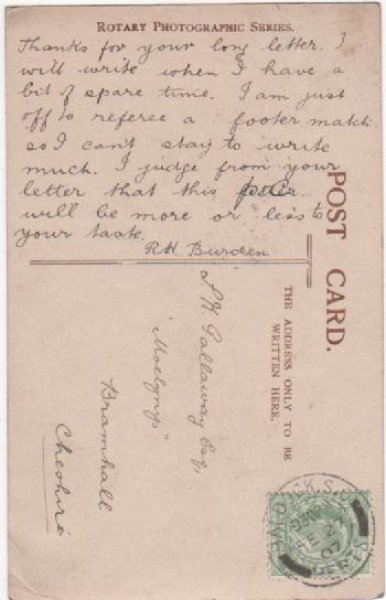 ROTARY PHOTOGRAPHIC SERIES.
Thanks for your long letter. I
will write when I have a
bit of spare time. I am just
off to referee a footer match
so I can't stay to write
much. I judge from your
letter that this
will be more or less to
your taste.
R.H. Burden
POST CARD.
THE ADDRESS ONLY TO BE
WRITTEN HERE.
Gallaway Esq.
Bramhall
Cheshire